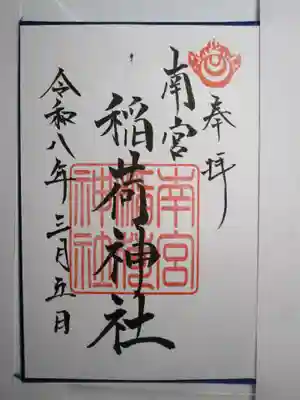 奉拝
南宮
稲荷神社
令和八年三月五日
南宮
神社